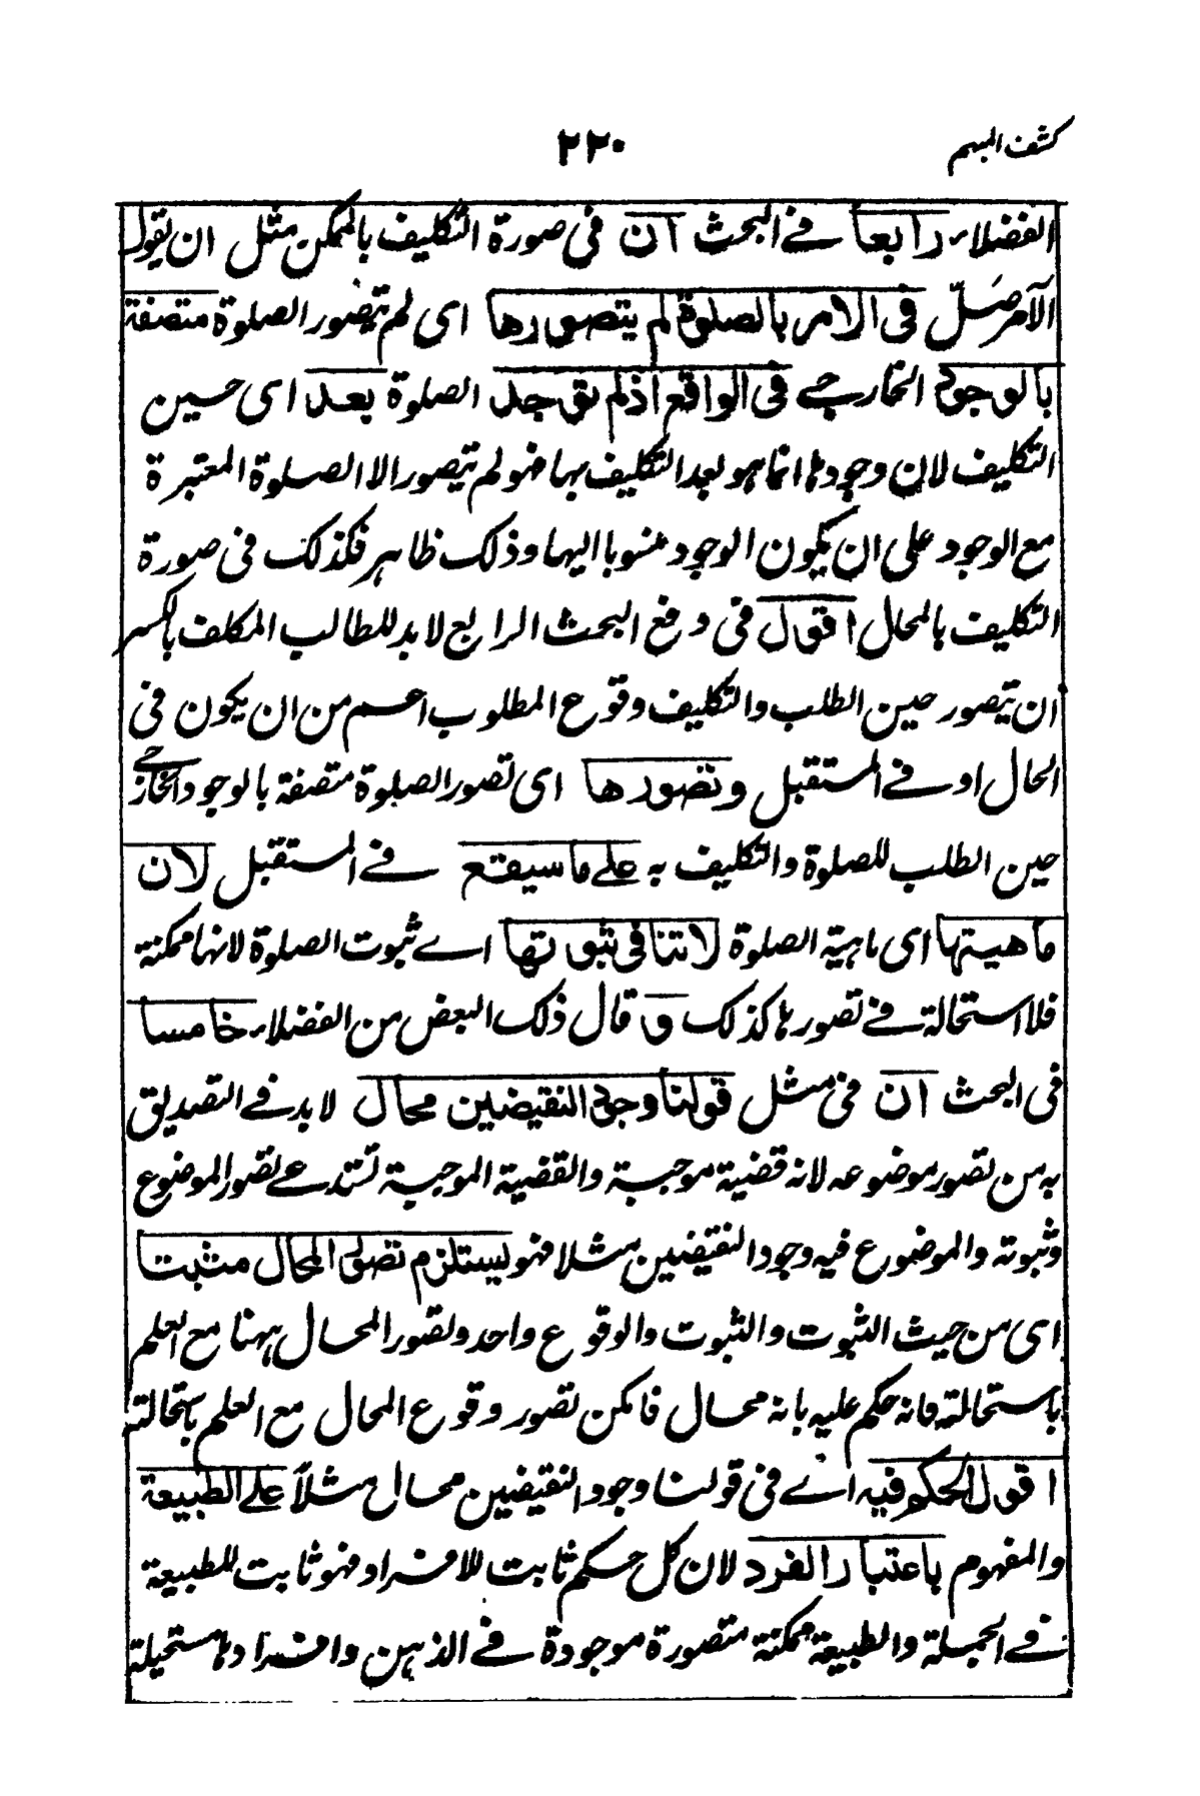 كشف المبهم
٢٢٠
الفضلاء رابعا في البحث ان فى صورة التكليف بالممكن مثل ان يقول
الآمر صَلّ فى الامر بالصلوة لم يتصورها اى لم يتصور الصلوة متصفة
بالوجود الخارجي فى الواقع اذ لم توجد الصلوة بعد اى حين
التكليف لان وجودها انما هو بعد التكليف بها فهو لم يتصور الا الصلوة المعتبرة
مع الوجود على ان يكون الوجود منسوبا اليها وذلك ظاهر فكذلك فى صورة
التكليف بالمحال اقول فى دفع البحث الرابع لابد للطالب المكلف بالكسر
ان يتصور حين الطلب والتكليف وقوع المطلوب اعم من ان يكون فى
الحال او في المستقبل وتصورها اى تصور الصلوة متصفة بالوجود الخارجي
حين الطلب للصلوة والتكليف به على ما سيقع في المستقبل لان
ماهيتها اى ماهية الصلوة لا تنافى ثبوتها اے ثبوت الصلوة لانها ممكنة
فلا استحالة في تصورها كذلك و قال ذلك البعض من الفضلاء خامسا
فى البحث ان فى مثل قولنا وجود النقيضين محال لابد في التصديق
به من تصور موضوعه لانه قضية موجبة والقضية الموجبة تستدعے تصور الموضوع
وثبوته والموضوع فيه وجود النقيضين مثلا فهو يستلزم تصور المحال مثبتا
اى من حيث الثبوت والثبوت والوقوع واحد وتصور المحال ههنا مع العلم
باستحالته فانه حكم عليه بانه محال فامكن تصور وقوع المحال مع العلم باستحالته
اقول الحكم فيه اے فى قولنا وجود النقيضين محال مثلاً على الطبيعة
والمفهوم باعتبار الفرد لان كل حكم ثابت للافراد فهو ثابت للطبيعة
في الجملة والطبيعة ممكنة متصورة موجودة في الذهن وافرادها مستحيلة